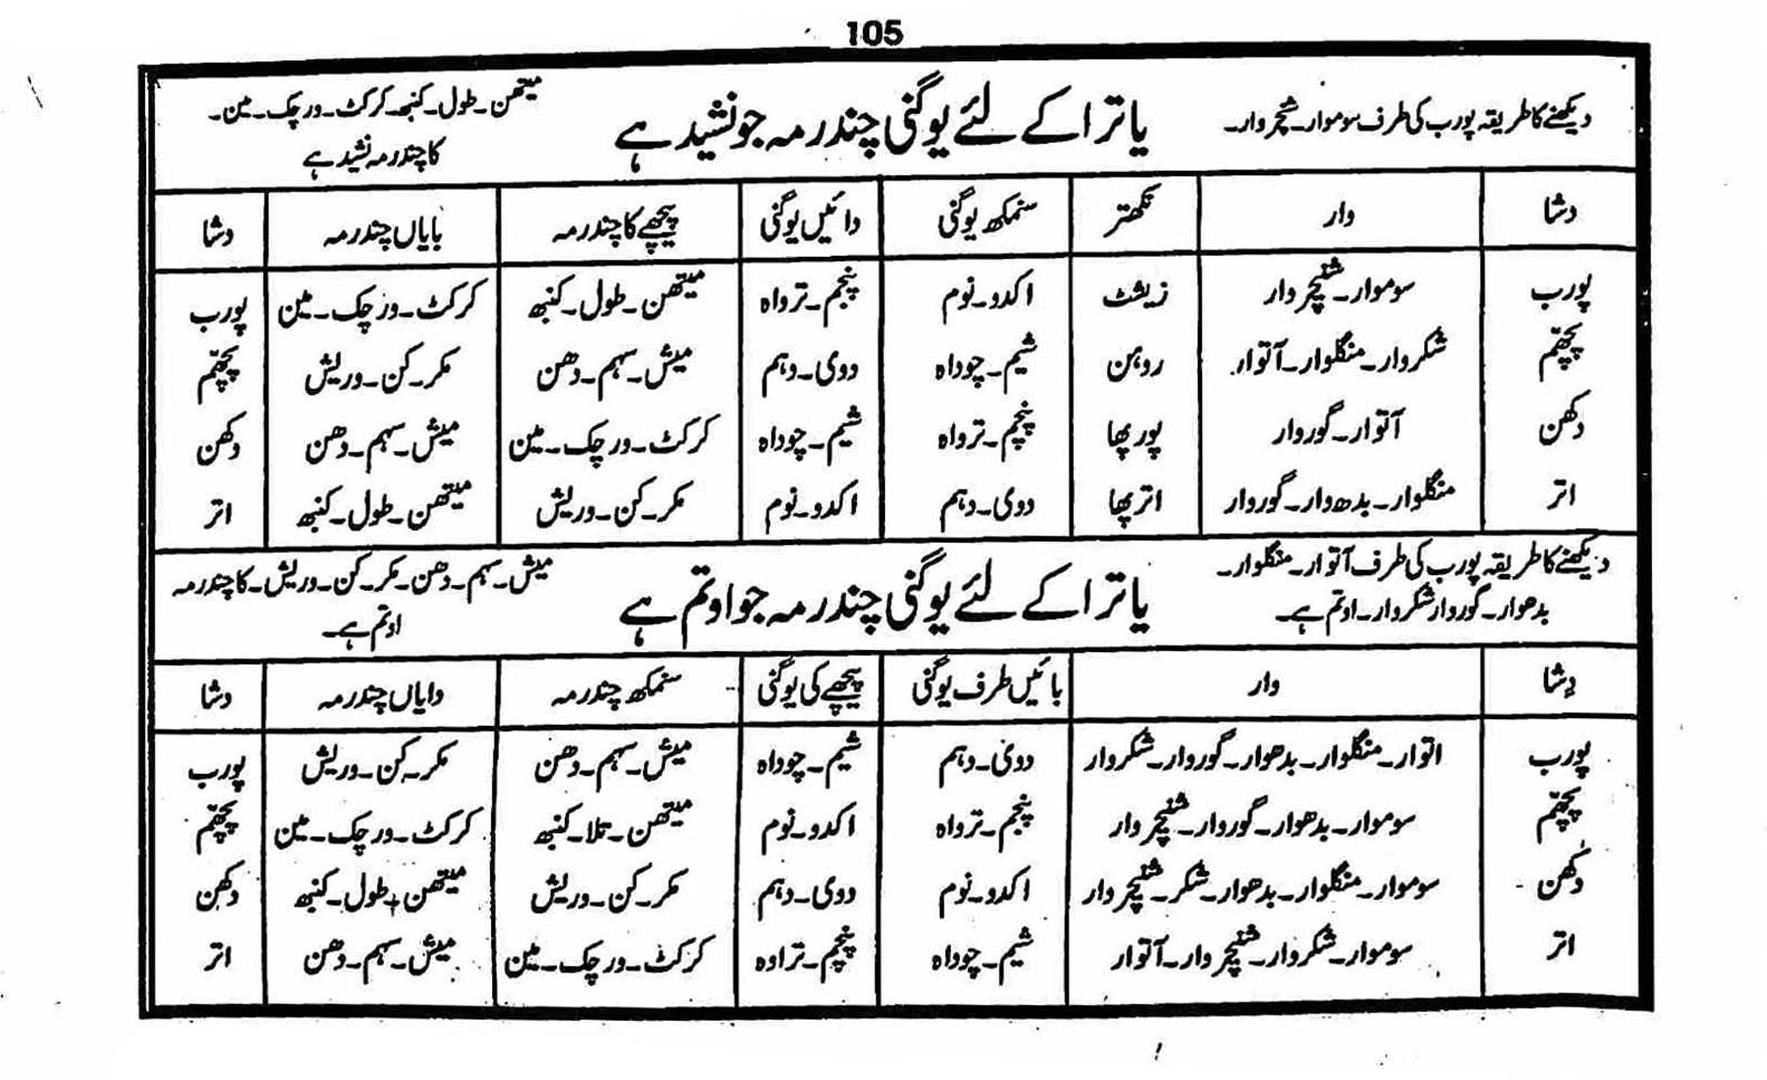 105
دیکھنے کا طریقہ پورب کی طرف سوموار۔ شنچروار۔
یاترا کے لئے یوگنی چندرمہ جو نشید ہے
میتھن۔ طول۔ کنبھ۔ کرکٹ۔ ورچک۔ مین۔
کا چندرمہ نشید ہے
دشا وار نکھتر سنمکھ یوگنی دائیں یوگنی پیچھے کا چندرمہ بایاں چندرمہ دشا
پورب سوموار۔ شنچروار زیشٹ اکدو۔ نوم پنجم۔ ترواہ میتھن۔ طول۔ کنبھ کرکٹ۔ ورچک۔ مین پورب
پچھم شکروار۔ منگلوار۔ آتوار۔ روہن شیم۔ چوداہ دوی۔ دہم میش۔ سہم۔ دھن مکر۔ کن۔ وریش پچھم
دکھن آتوار۔ گوروار پوربھا پنچم۔ ترواہ شیم۔ چوداہ کرکٹ۔ ورچک۔ مین میش۔ سہم۔ دھن دکھن
اتر منگلوار۔ بدھ وار۔ گوروار اتربھا دوی۔ دہم اکدو۔ نوم مکر۔ کن۔ وریش میتھن۔ طول۔ کنبھ اتر
دیکھنے کا طریقہ پورب کی طرف آتوار۔ منگلوار۔
بدھوار۔ گوروار شکروار۔ اوتم ہے۔
یاترا کے لئے یوگنی چندرمہ جو اوتم ہے
میش۔ سہم۔ دھن۔ مکر۔ کن۔ وریش۔ کا چندرمہ
اوتم ہے۔
دشا وار بائیں طرف یوگنی پیچھے کی یوگنی سنمکھ چندرمہ دایاں چندرمہ دشا
پورب اتوار۔ منگلوار۔ بدھوار۔ گوروار۔ شکروار دوی۔ دہم شیم۔ چوداہ میش۔ سہم۔ دھن مکر۔ کن۔ وریش پورب
پچھم سوموار۔ بدھوار۔ گوروار۔ شنچروار پنجم۔ ترواہ اکدو۔ نوم میتھن۔ تلا۔ کنبھ کرکٹ۔ ورچک۔ مین پچھم
دکھن سوموار۔ منگلوار۔ بدھوار۔ شکر۔ شنچروار اکدو۔ نوم دوی۔ دہم مکر۔ کن۔ وریش میتھن۔ طول۔ کنبھ دکھن
اتر سوموار۔ شکروار۔ شنچروار۔ آتوار شیم۔ چوداہ پنچم۔ تراوہ کرکٹ۔ ورچک۔ مین میش۔ سہم۔ دھن اتر